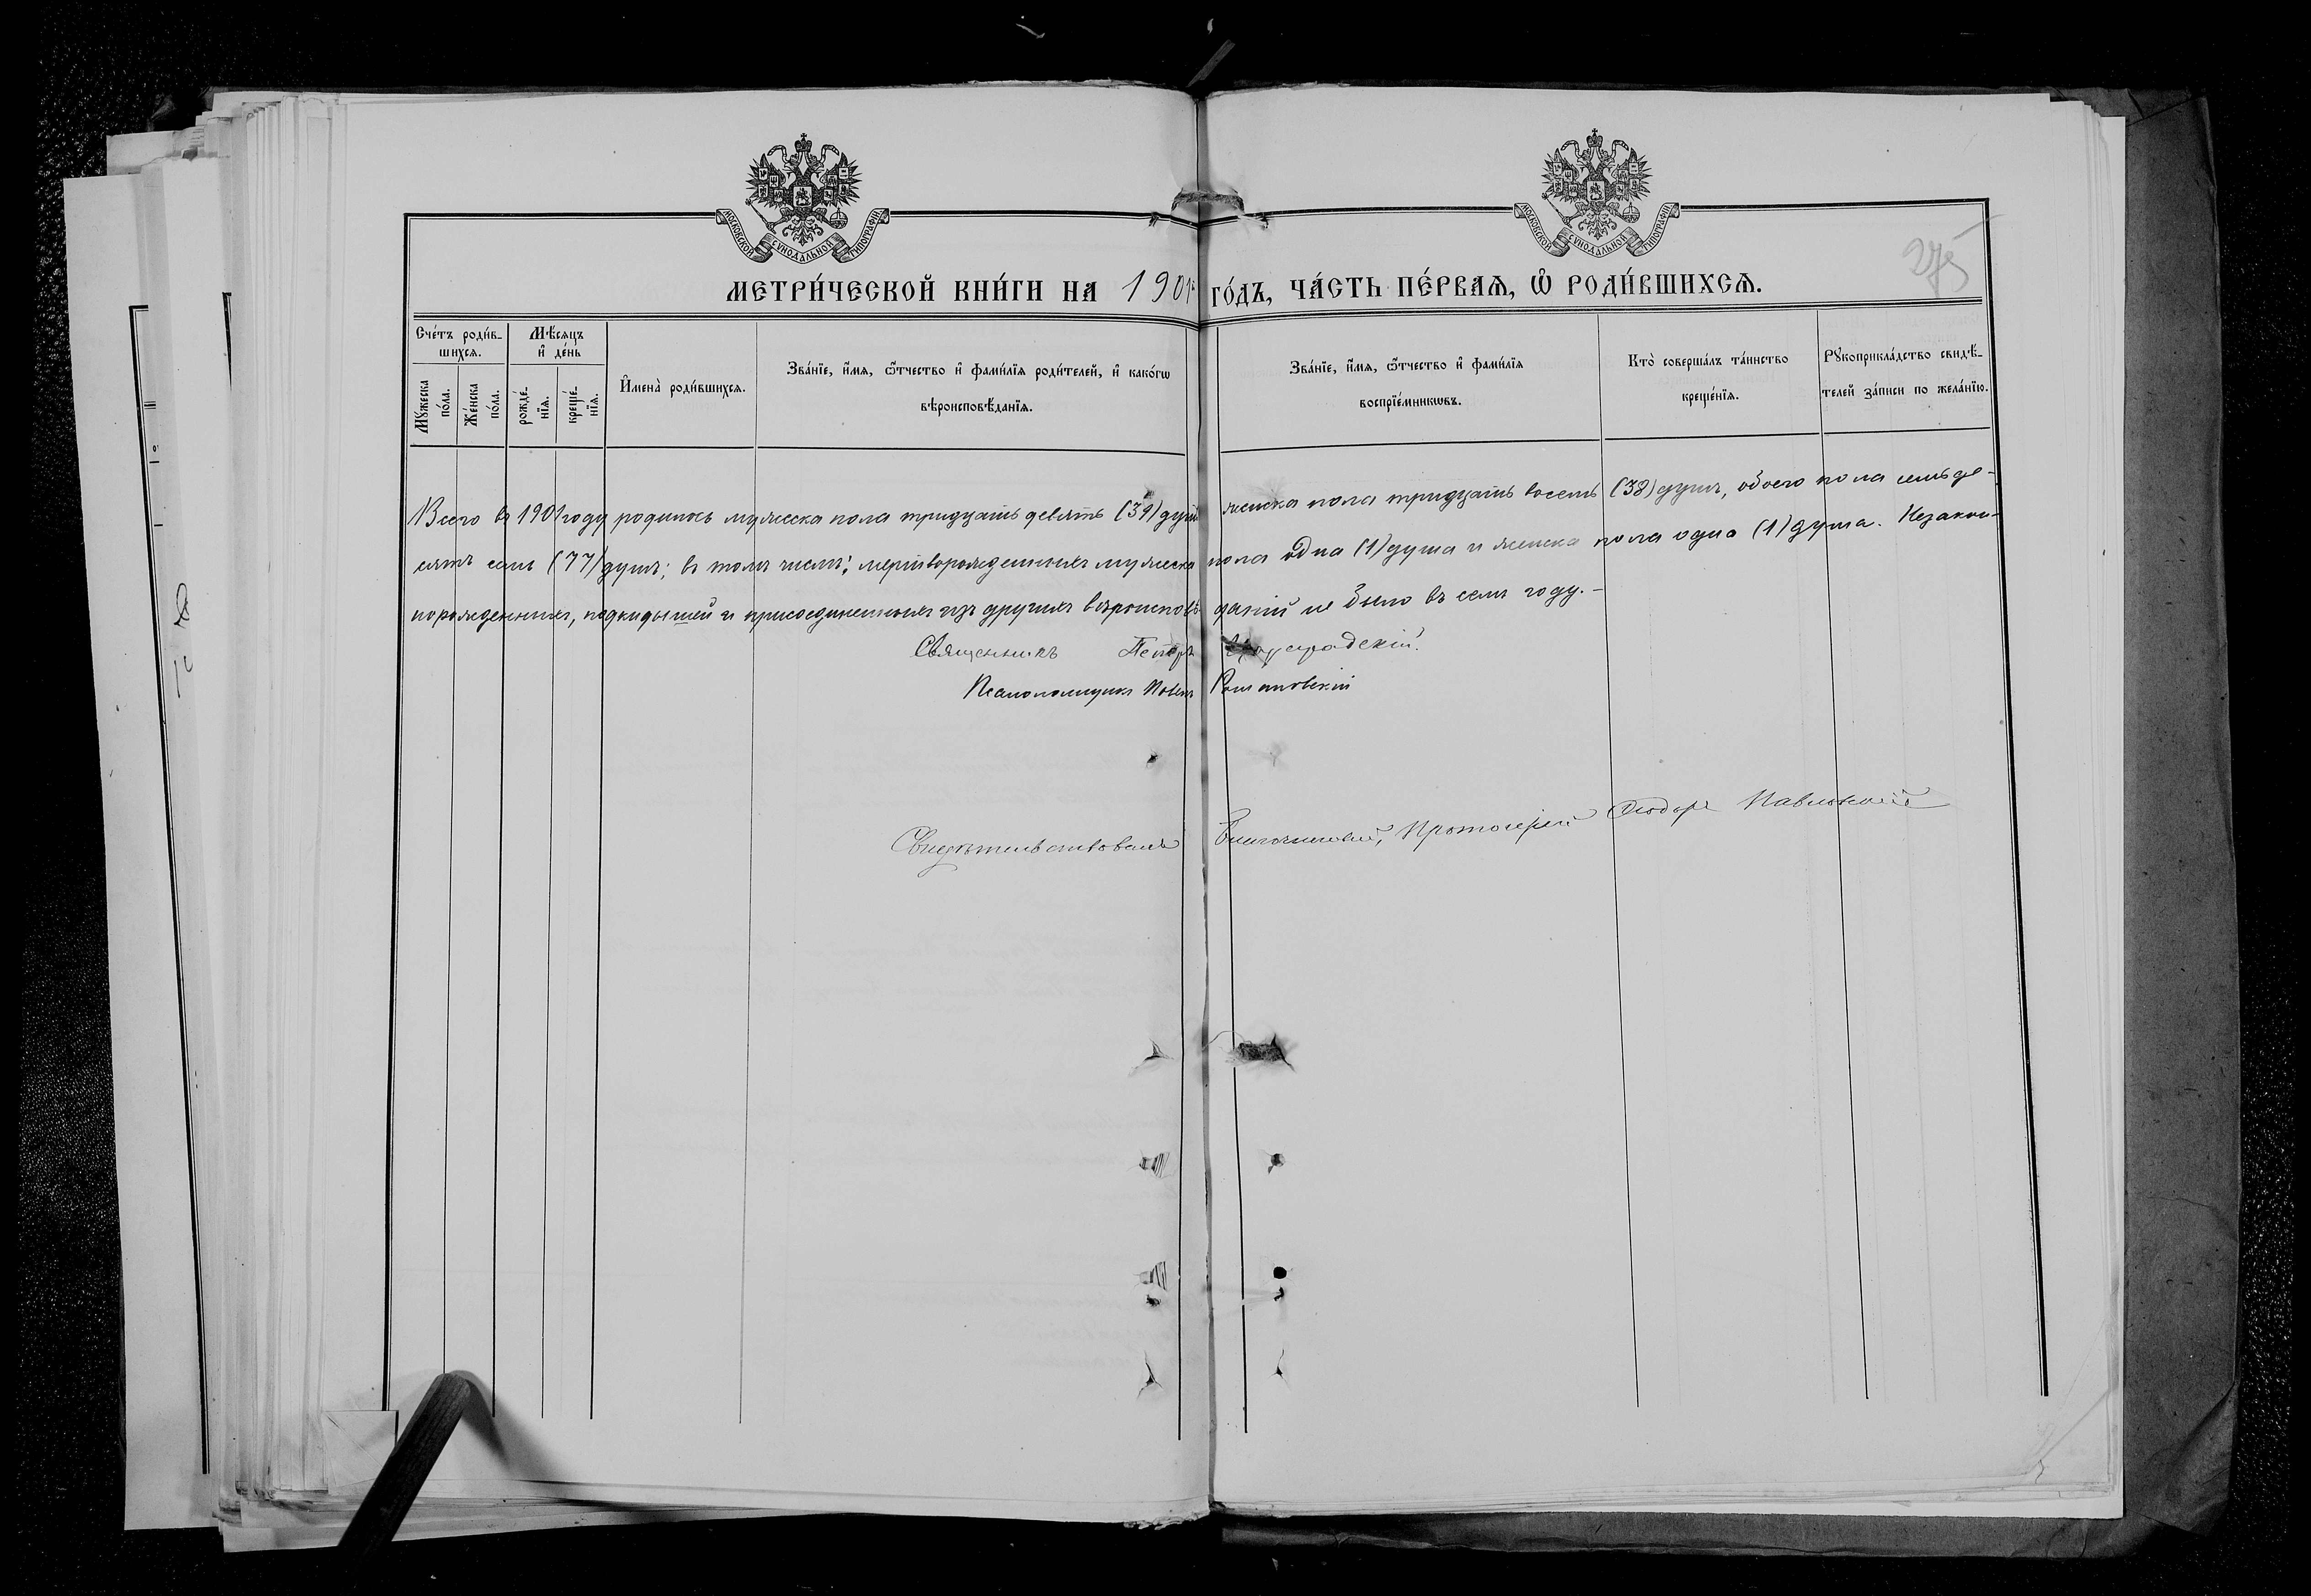 МОСКОВСКОЙ СѴНОДАЛЬНОЙ ТИПОГРАФІИ
МОСКОВСКОЙ СѴНОДАЛЬНОЙ ТИПОГРАФІИ
275
МЕТРИ́ЧЕСКОЙ КНИ́ГИ НА 1901 ГО́ДЪ, ЧА́СТЬ ПЕ́РВАѦ, Ѡ҆ РОДИ́ВШИХСѦ.
Сче́тъ роди́в-
шихсѧ.
Мꙋ́жеска
по́ла.
Же́нска
по́ла.
Мѣ́сѧцъ
и҆ де́нь
рожде́-
нїѧ.
креще́-
нїѧ.
И҆мена̀ роди́вшихсѧ.
Зва́нїе, и҆́мѧ, ѻ҆́тчество и҆ фами́лїѧ роди́телей, и҆ како́гѡ
вѣроисповѣ́данїѧ.
Зва́нїе, и҆́мѧ, ѻ҆́тчество и҆ фами́лїѧ
воспрїе́мникѡвъ.
Кто̀ соверша́лъ та́инство
креще́нїѧ.
Рꙋкоприкла́дство свидѣ́-
телей за́писи по жела́нїю.
Всего въ 1901 году родилось мужеска пола тридцать девять (39) душъ женска пола тридцать восемь (38) душъ, обоего пола семьде-
сятъ семь (77) душъ; въ томъ числѣ: мертворожденныхъ мужеска пола одна (1) душа и женска пола одна (1) душа. Незакон-
норожденныхъ, подкидышей и присоединенныхъ изъ другихъ вѣроисповѣданій не было въ семъ году.-
Священникъ Петръ
Псаломщикъ Романовскій
Свидѣтельствовалъ Благочинный, Протоіерей Ѳеодоръ Павловскій